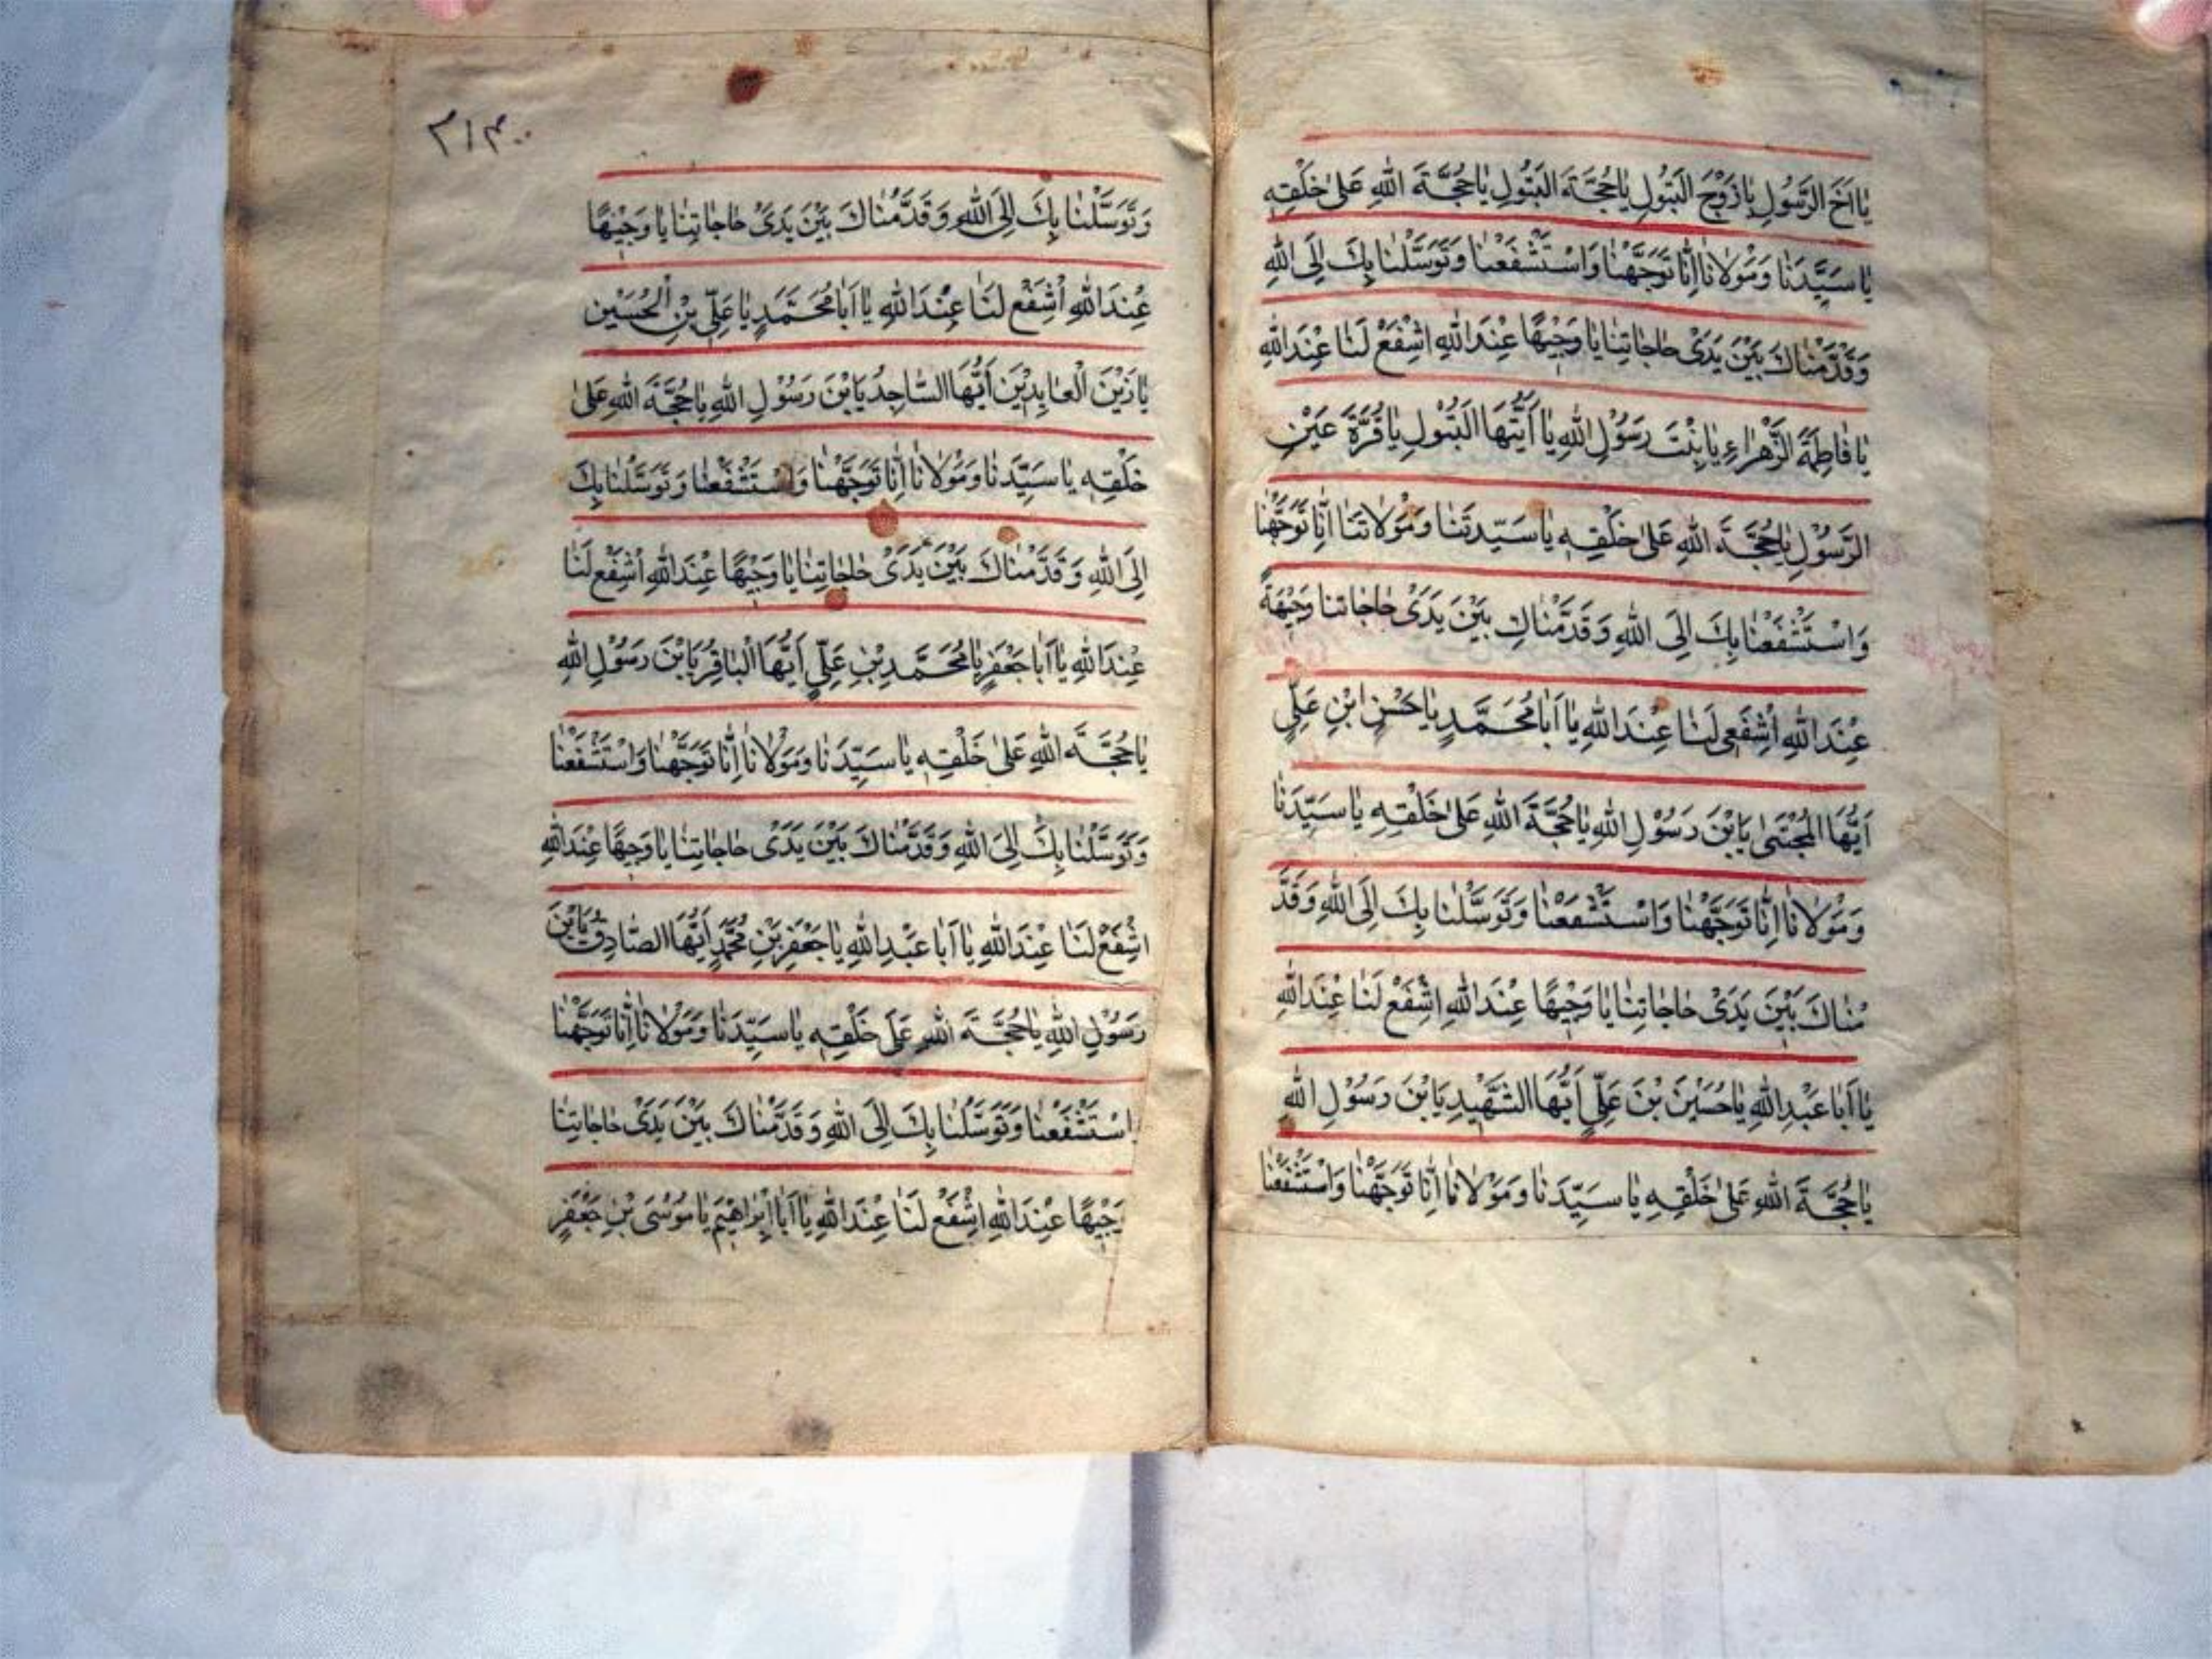 يٰا اَخَ الرَّسُولِ يٰا زَوْجَ الْبَتُولِ يٰا حُجَّةَ الْبَتُولِ يٰا حُجَّةَ اللهِ عَلىٰ خَلْقِهِ
يٰا سَيِّدَنٰا وَمَوْلاٰنٰا اِنّٰا تَوَجَّهْنٰا وَاسْتَشْفَعْنٰا وَتَوَسَّلْنٰا بِكَ اِلَى اللهِ
وَقَدَّمْنٰاكَ بَيْنَ يَدَىْ حٰاجٰاتِنٰا يٰا وَجِيْهًا عِنْدَ اللهِ اشْفَعْ لَنٰا عِنْدَ اللهِ
يٰا فٰاطِمَةَ الزَّهْرٰاءِ يٰا بِنْتَ رَسُوْلِ اللهِ يٰا اَيَّتُهَا الْبَتُوْلِ يٰا قُرَّةَ عَيْنِ
الرَّسُوْلِ يٰا حُجَّةَ اللهِ عَلىٰ خَلْقِهِ يٰا سَيِّدَتَنٰا وَمَوْلاٰتَنٰا اِنّٰا تَوَجَّهْنٰا
وَاسْتَشْفَعْنٰا بِكَ اِلَى اللهِ وَقَدَّمْنٰاكِ بَيْنَ يَدَىْ حٰاجٰاتنا وَجِيْهَةً
عِنْدَ اللهِ اُشْفَعِى لَنٰا عِنْدَ اللهِ يٰا اَبٰا مُحَمَّدٍ يٰا حَسَنِ ابْنِ عَلِىٍّ
اَيُّهَا الْمُجْتَبىٰ يَابْنَ رَسُوْلِ اللهِ يٰا حُجَّةَ اللهِ عَلىٰ خَلْقِهِ يٰا سَيِّدَنٰا
وَمَوْلاٰنٰا اِنّٰا تَوَجَّهْنٰا وَاسْتَشْفَعْنٰا وَتَوَسَّلْنٰا بِكَ اِلَى اللهِ وَقَدَّ
مْنٰاكَ بَيْنَ يَدَىْ حٰاجٰاتِنٰا يٰا وَجِيْهًا عِنْدَ اللهِ اشْفَعْ لَنٰا عِنْدَ اللهِ
يٰا اَبٰا عَبْدِ اللهِ يٰا حُسَيْنَ بْنَ عَلِىٍّ اَيُّهَا الشَّهِيْدِ يَابْنَ رَسُوْلِ اللهِ
يٰا حُجَّةَ اللهِ عَلىٰ خَلْقِهِ يٰا سَيِّدَنٰا وَمَوْلاٰنٰا اِنّٰا تَوَجَّهْنٰا وَاسْتَشْفَعْنٰا
وَتَوَسَّلْنٰا بِكَ اِلَى اللهِ وَقَدَّمْنٰاكَ بَيْنَ يَدَىْ حٰاجٰاتِنٰا يٰا وَجِيْهًا
عِنْدَ اللهِ اُشْفَعْ لَنٰا عِنْدَ اللهِ يٰا اَبٰا مُحَمَّدٍ يٰا عَلِىِّ بْنِ الْحُسَيْنِ
يٰا زَيْنَ الْعٰابِدِيْنَ اَيُّهَا السّٰاجِدُ يَابْنَ رَسُوْلِ اللهِ يٰا حُجَّةَ اللهِ عَلىٰ
خَلْقِهِ يٰا سَيِّدَنٰا وَمَوْلاٰنٰا اِنّٰا تَوَجَّهْنٰا وَاسْتَشْفَعْنٰا وَتَوَسَّلْنٰا بِكَ
اِلَى اللهِ وَقَدَّمْنٰاكَ بَيْنَ يَدَىْ حٰاجٰاتِنٰا يٰا وَجِيْهًا عِنْدَ اللهِ اُشْفَعْ لَنٰا
عِنْدَ اللهِ يٰا اَبٰا جَعْفَرٍ يٰا مُحَمَّدِ بْنِ عَلِىٍّ اَيُّهَا الْبٰاقِرُ يَابْنَ رَسُوْلِ اللهِ
يٰا حُجَّةَ اللهِ عَلىٰ خَلْقِهِ يٰا سَيِّدَنٰا وَمَوْلاٰنٰا اِنّٰا تَوَجَّهْنٰا وَاسْتَشْفَعْنٰا
وَتَوَسَّلْنٰا بِكَ اِلَى اللهِ وَقَدَّمْنٰاكَ بَيْنَ يَدَىْ حٰاجٰاتِنٰا يٰا وَجِيهًا عِنْدَ اللهِ
اشْفَعْ لَنٰا عِنْدَ اللهِ يٰا اَبٰا عَبْدِ اللهِ يٰا جَعْفَرِ بْنِ مُحَمَّدٍ اَيُّهَا الصّٰادِقُ يَابْنَ
رَسُوْلِ اللهِ يٰا حُجَّةَ اللهِ عَلىٰ خَلْقِهِ يٰا سَيِّدَنٰا وَمَوْلاٰنٰا اِنّٰا تَوَجَّهْنٰا
اسْتَشْفَعْنٰا وَتَوَسَّلْنٰا بِكَ اِلَى اللهِ وَقَدَّمْنٰاكَ بَيْنَ يَدَىْ حٰاجٰاتِنٰا
وَجِيْهًا عِنْدَ اللهِ اِشْفَعْ لَنٰا عِنْدَ اللهِ يٰا اَبٰا اِبْرٰاهِيْمَ يٰا مُوْسَى بْنِ جَعْفَرٍ